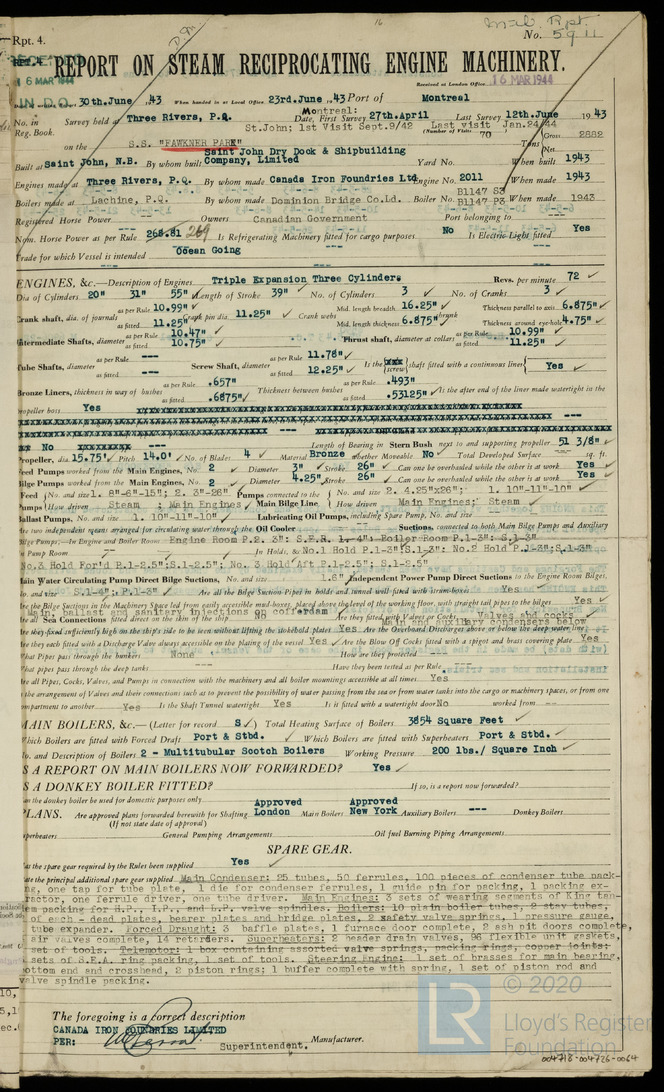 Mab. Rpt
Rpt. 4. No. 5911
16 MAR 1944
REPORT ON STEAM RECIPROCATING ENGINE MACHINERY.
Received at London Office 16 MAR 1944
IN D.O. 30th.June .43 When handed in at Local Office 23rd.June .43 Port of Montreal
No. in Survey held at Three Rivers, P.Q. Montreal: Date, First Survey 27th.April Last Survey 12th.June 1943
Reg. Book. St.John; 1st Visit Sept.9/42 Last visit Jan.24/44
(Number of Visits 70
on the S.S. "FAWKNER PARK" Tons Gross 2882 Net
Built at Saint John, N.B. By whom built Saint John Dry Dock & Shipbuilding Company, Limited Yard No. When built 1943
Engines made at Three Rivers, P.Q. By whom made Canada Iron Foundries Ltd. Engine No. 2011 When made 1943
Boilers made at Lachine, P.Q. By whom made Dominion Bridge Co.Ld. Boiler No. B1147 S3 B1147 P3 When made 1943
Registered Horse Power --- Owners Canadian Government Port belonging to ---
Nom. Horse Power as per Rule 268.81 269 Is Refrigerating Machinery fitted for cargo purposes No Is Electric Light fitted Yes
Trade for which Vessel is intended Ocean Going
ENGINES, &c.—Description of Engines Triple Expansion Three Cylinders Revs. per minute 72
Dia of Cylinders 20" 31" 55" Length of Stroke 39" No. of Cylinders 3 No. of Cranks 3
Crank shaft, dia. of journals as per Rule 10.99" as fitted 11.25" Crank pin dia. 11.25" Crank webs Mid. length breadth 16.25" Mid. length thickness 6.875" shrunk Thickness parallel to axis 6.875" Thickness around eye-hole 4.75"
Intermediate Shafts, diameter as per Rule 10.47" as fitted 10.75" Thrust shaft, diameter at collars as per Rule 10.99" as fitted 11.25"
Tube Shafts, diameter as per Rule --- as fitted --- Screw Shaft, diameter as per Rule 11.78" as fitted 12.25" Is the screw shaft fitted with a continuous liner Yes
Bronze Liners, thickness in way of bushes as per Rule .657" as fitted .6875" Thickness between bushes as per Rule .493" as fitted .53125" Is the after end of the liner made watertight in the
propeller boss Yes
No Length of Bearing in Stern Bush next to and supporting propeller 51 3/8"
Propeller, dia. 15.75' Pitch 14.0' No. of Blades 4 Material Bronze whether Moveable No Total Developed Surface --- sq. ft.
Feed Pumps worked from the Main Engines, No. 2 Diameter 3" Stroke 26" Can one be overhauled while the other is at work Yes
Bilge Pumps worked from the Main Engines, No. 2 Diameter 4.25" Stroke 26" Can one be overhauled while the other is at work Yes
Feed Pumps No. and size 1. 8"-6"-15"; 2. 3"-26" How driven Steam ; Main Engines Pumps connected to the Main Bilge Line No. and size 2. 4.25"x26"; 1. 10"-11"-10" How driven Main Engines; Steam
Ballast Pumps, No. and size 1. 10"-11"-10" Lubricating Oil Pumps, including Spare Pump, No. and size ---
Are two independent means arranged for circulating water through the Oil Cooler --- Suctions, connected to both Main Bilge Pumps and Auxiliary
Bilge Pumps;—In Engine and Boiler Room Engine Room P.2. 3"; S.E.R. 1. 4"; Boiler Room P.1-3"; S.1-3"
In Pump Room --- In Holds, &c. No.1 Hold P.1-3" S.1-3"; No.2 Hold P.1-3"; S.1-3"
No.3 Hold For'd P.1-2.5";S.1-2.5"; No. 3 Hold Aft P.1-2.5"; S.1-2.5"
Main Water Circulating Pump Direct Bilge Suctions, No. and size 1.6" Independent Power Pump Direct Suctions to the Engine Room Bilges,
No. and size S.1-4"; P.1-3" Are all the Bilge Suction Pipes in holds and tunnel well fitted with strum-boxes Yes
Are the Bilge Suctions in the Machinery Space led from easily accessible mud-boxes, placed above the level of the working floor, with straight tail pipes to the bilges Yes
Main, ballast and sanitary injections on cofferdam
Are all Sea Connections fitted direct on the skin of the ship No Are they fitted with Valves or Cocks Valves and cocks
Main and auxiliary condensers below
Are they fixed sufficiently high on the ship's side to be seen without lifting the stokehold plates Yes Are the Overboard Discharges above or below the deep water line
Are they each fitted with a Discharge Valve always accessible on the plating of the vessel Yes Are the Blow Off Cocks fitted with a spigot and brass covering plate Yes
What Pipes pass through the bunkers None How are they protected ---
What pipes pass through the deep tanks --- Have they been tested as per Rule ---
Are all Pipes, Cocks, Valves, and Pumps in connection with the machinery and all boiler mountings accessible at all times Yes
Is the arrangement of Valves and their connections such as to prevent the possibility of water passing from the sea or from water tanks into the cargo or machinery spaces, or from one
compartment to another Yes Is the Shaft Tunnel watertight Yes Is it fitted with a watertight door No worked from --
MAIN BOILERS, &c.—(Letter for record S ) Total Heating Surface of Boilers 3854 Square Feet
Which Boilers are fitted with Forced Draft Port & Stbd. Which Boilers are fitted with Superheaters Port & Stbd.
No. and Description of Boilers 2 - Multitubular Scotch Boilers Working Pressure 200 lbs./ Square Inch
IS A REPORT ON MAIN BOILERS NOW FORWARDED? Yes
IS A DONKEY BOILER FITTED? --- If so, is a report now forwarded? ---
Can the donkey boiler be used for domestic purposes only ---
PLANS. Are approved plans forwarded herewith for Shafting Approved London Main Boilers Approved New York Auxiliary Boilers --- Donkey Boilers
(If not state date of approval)
Superheaters General Pumping Arrangements Oil fuel Burning Piping Arrangements
SPARE GEAR.
Has the spare gear required by the Rules been supplied Yes
State the principal additional spare gear supplied Main Condenser: 25 tubes, 50 ferrules, 100 pieces of condenser tube pack-
ing, one tap for tube plate, 1 die for condenser ferrules, 1 guide pin for packing, 1 packing ex-
tractor, one ferrule driver, one tube driver. Main Engines: 3 sets of wearing segments of King tan-
dem packing for H.P., I.P., and L.P. valve spindles. Boilers: 10 plain boiler tubes, 2 stay tubes,
of each - dead plates, bearer plates and bridge plates, 2 safety valve springs, 1 pressure gauge,
tube expander. Forced Draught: 3 baffle plates, 1 furnace door complete, 2 ash pit doors complete,
air valves complete, 14 retarders. Superheaters: 2 header drain valves, 96 flexible unit gaskets,
set of tools. Telemotor: 1 box containing assorted valve springs, packing rings, copper joints:
sets of S.E.A. ring packing, 1 set of tools. Steering Engine: 1 set of brasses for main bearing,
bottom end and crosshead, 2 piston rings; 1 buffer complete with spring, 1 set of piston rod and
valve spindle packing.
The foregoing is a correct description
CANADA IRON FOUNDRIES LIMITED
PER: Manufacturer.
Superintendent.
© 2020
LR Lloyd's Register
Foundation
004718-004726-0064